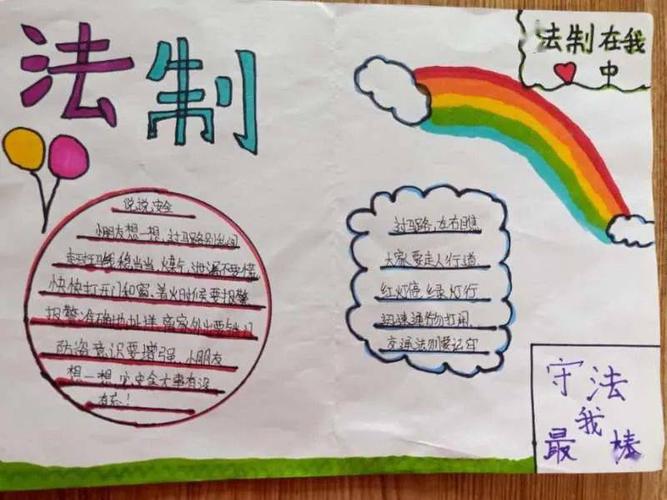 法制
法制在我
中
说说安全
小朋友想一想,过马路别
走斑马线稳当当,煤气
快快打开门和窗、着火时候要报警
报警准确地址详,离家外出要
防盗意识要增强,小朋友
想一想,安全大事有没
有忘!
过马路,左右瞧
大家要走人行道
红灯停,绿灯行
迅速通
交通法则要记
守法
我
最棒